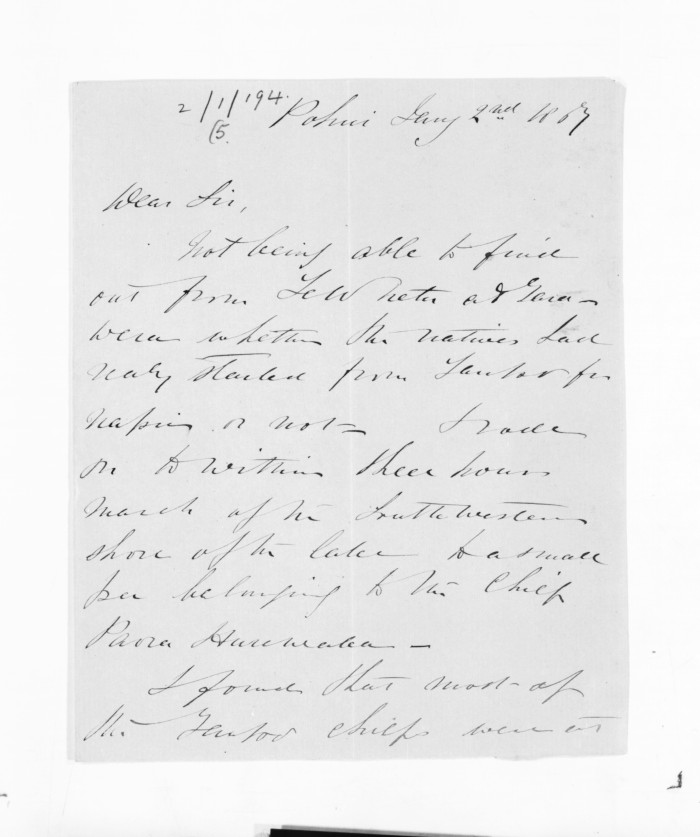 2/1/194.
15.
Pohui Jany 2nd 1867
Dear Sir,
Not being able to find
out from Te Wheta at Tara-
wera whether the natives had
really started from Taupo for
Napier or not - I rode
on to within three hours
march of the Southwestern
shore of the lake to a small
pa belonging to the Chief
Paora
I found that most of
the Taupo chiefs were at